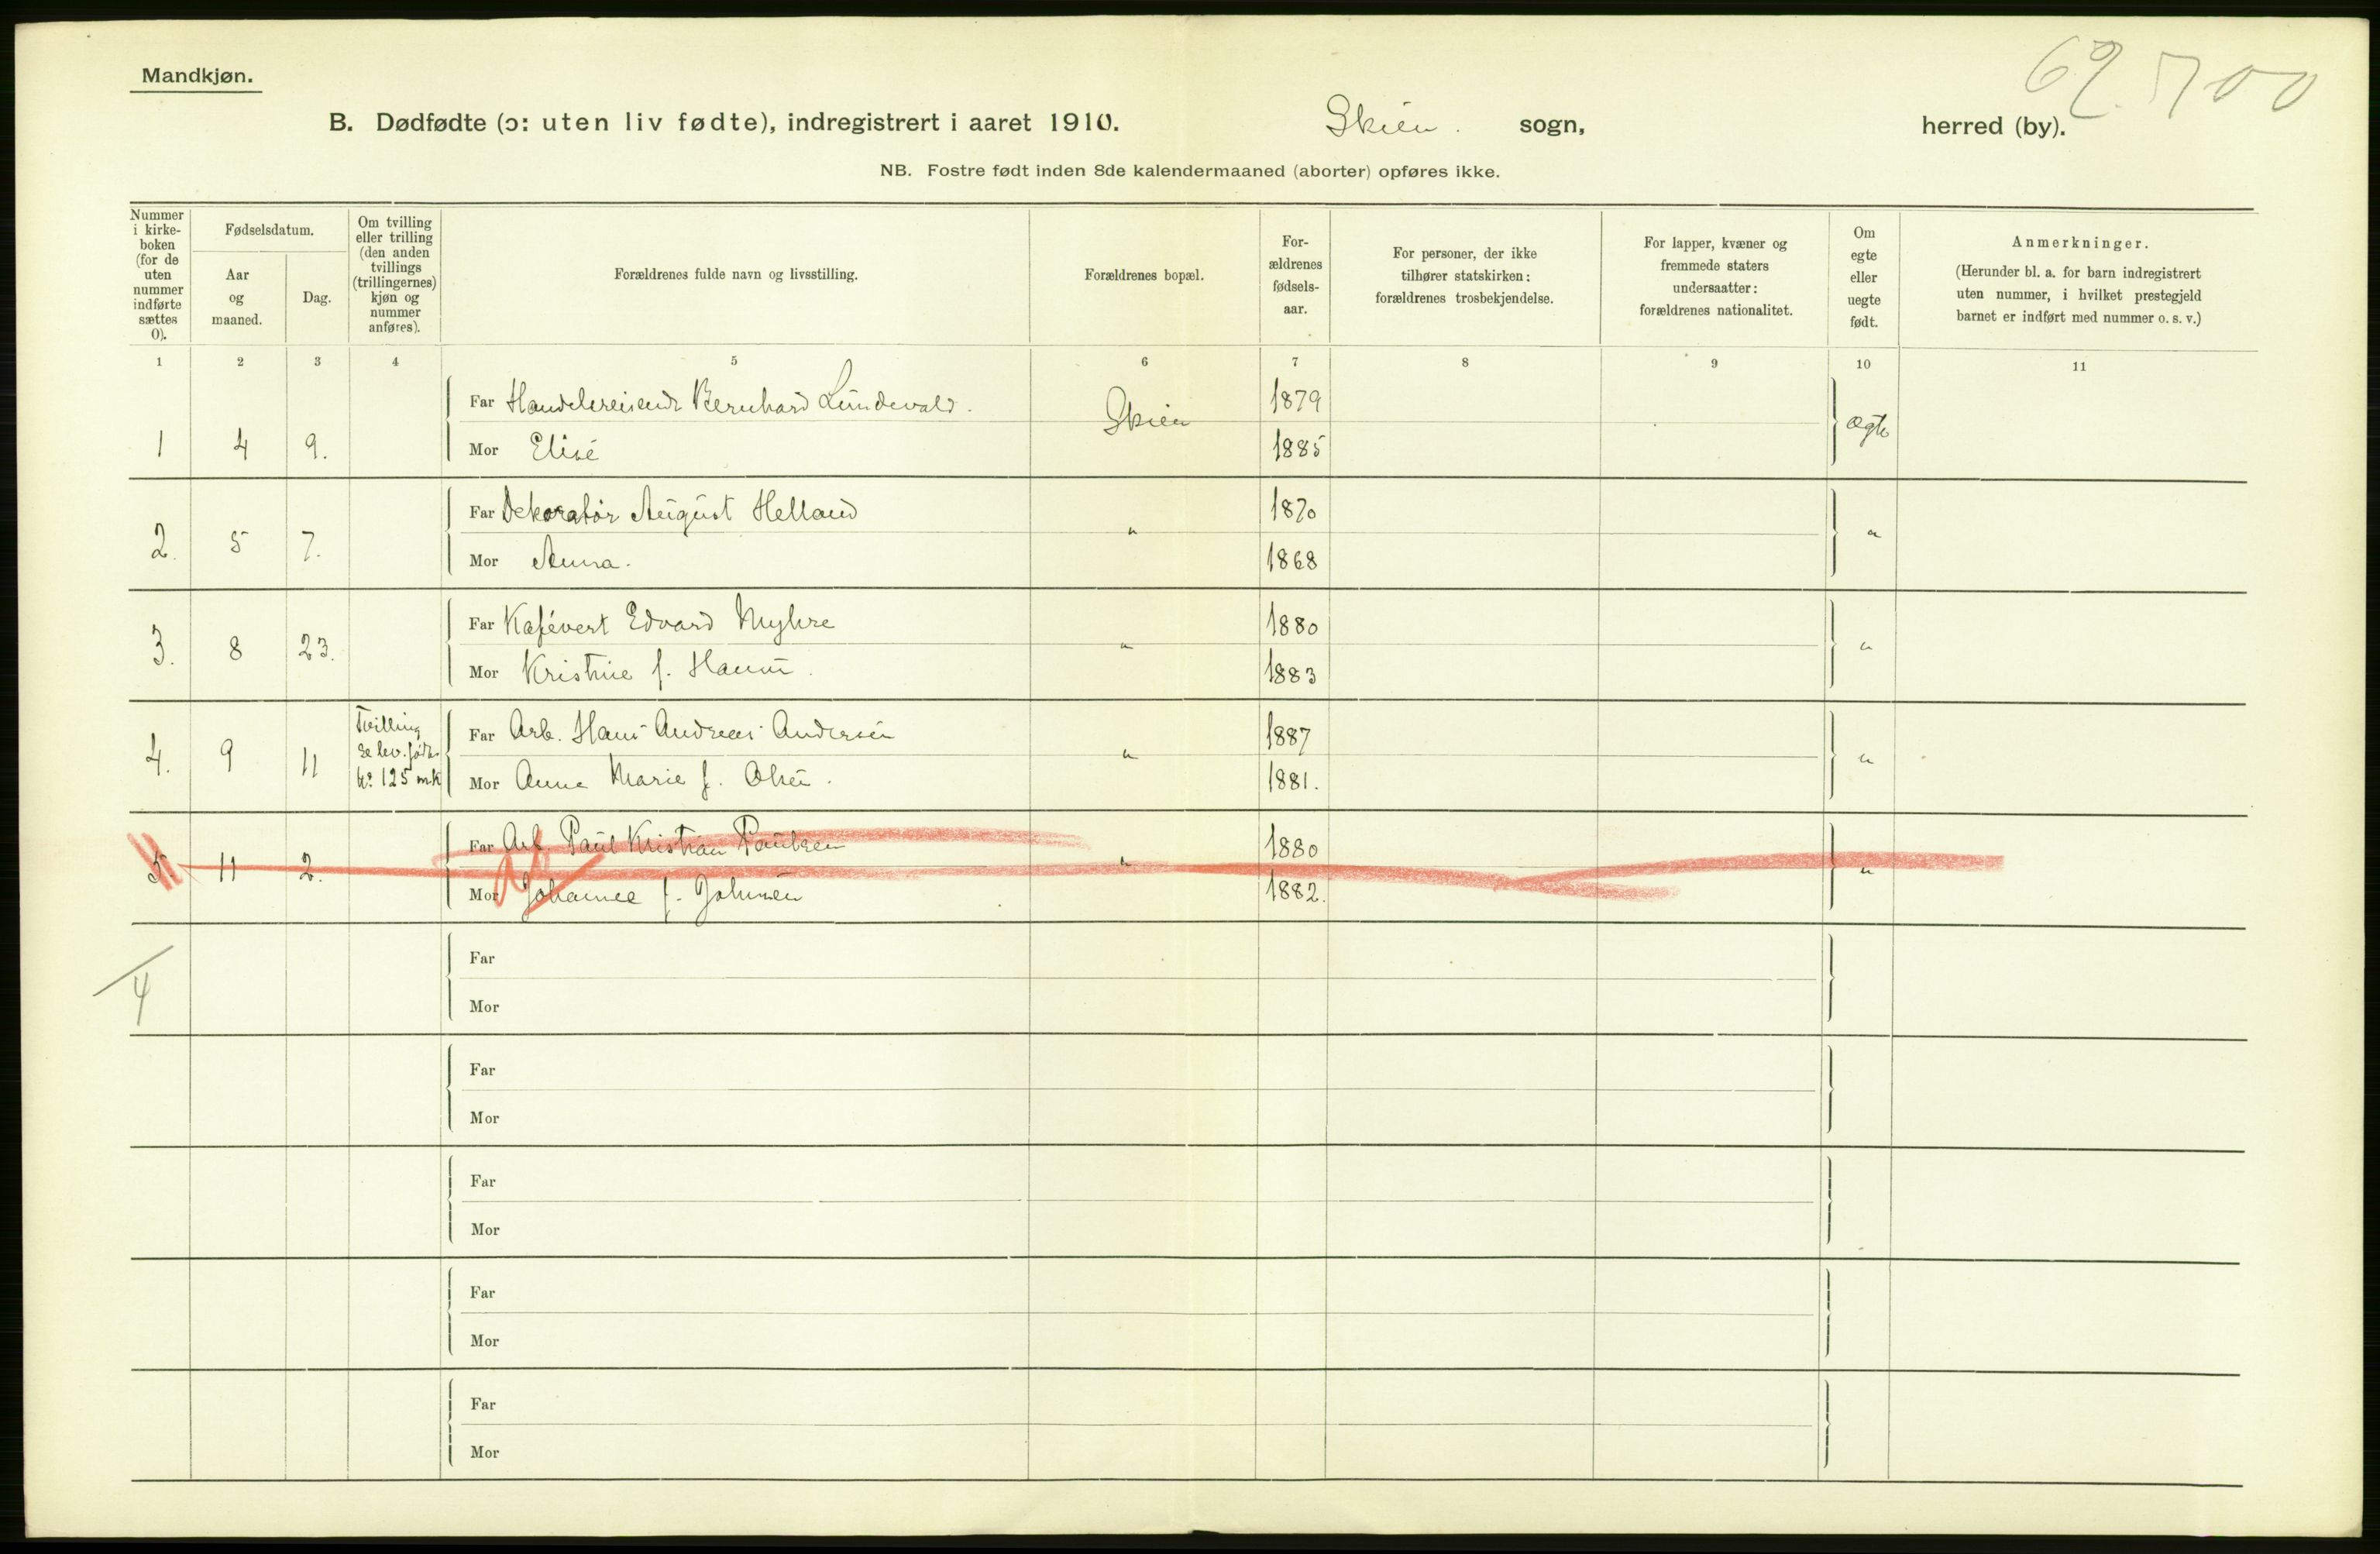 Mandkjøn.
62. 700
B. Dødfødte (ɔ: uten liv fødte), indregistrert i aaret 1910. Skien. sogn, herred (by).
NB. Fostre født inden 8de kalendermaaned (aborter) opføres ikke.
Nummer i kirke-boken (for de uten nummer indførte sættes 0).
Fødselsdatum.
Aar og maaned.
Dag.
Om tvilling eller trilling (den anden tvillings (trillingernes) kjøn og nummer anføres).
Forældrenes fulde navn og livsstilling.
Forældrenes bopæl.
For-ældrenes fødsels-aar.
For personer, der ikke tilhører statskirken: forældrenes trosbekjendelse.
For lapper, kvæner og fremmede staters undersaatter: forældrenes nationalitet.
Om egte eller uegte født.
Anmerkninger.
(Herunder bl. a. for barn indregistrert uten nummer, i hvilket prestegjeld barnet er indført med nummer o. s. v.)
1 2 3 4 5 6 7 8 9 10 11
Far Handelsreisende Bernhard Lundevald. 1879
1 4 9. Skien ægte
Mor Elise 1885
Far Dekoratør August Helland 1870
2. 5 7. " "
Mor Anna. 1868
Far Kafévert Edvard Myhre 1880
3. 8 23. " "
Mor Kristine f. 1883
Far Arb. Hans Andreas Andersen 1887
4. 9 11 Tvilling se lev. født. No 125 m.k " "
Mor Anna Marie f. Olsen. 1881.
Far Arb. Paul Kristian Paulsen 1880
5. 11 2. " "
Mor Johanne f. Johnsen 1882.
4
Far
Mor
Far
Mor
Far
Mor
Far
Mor
Far
Mor